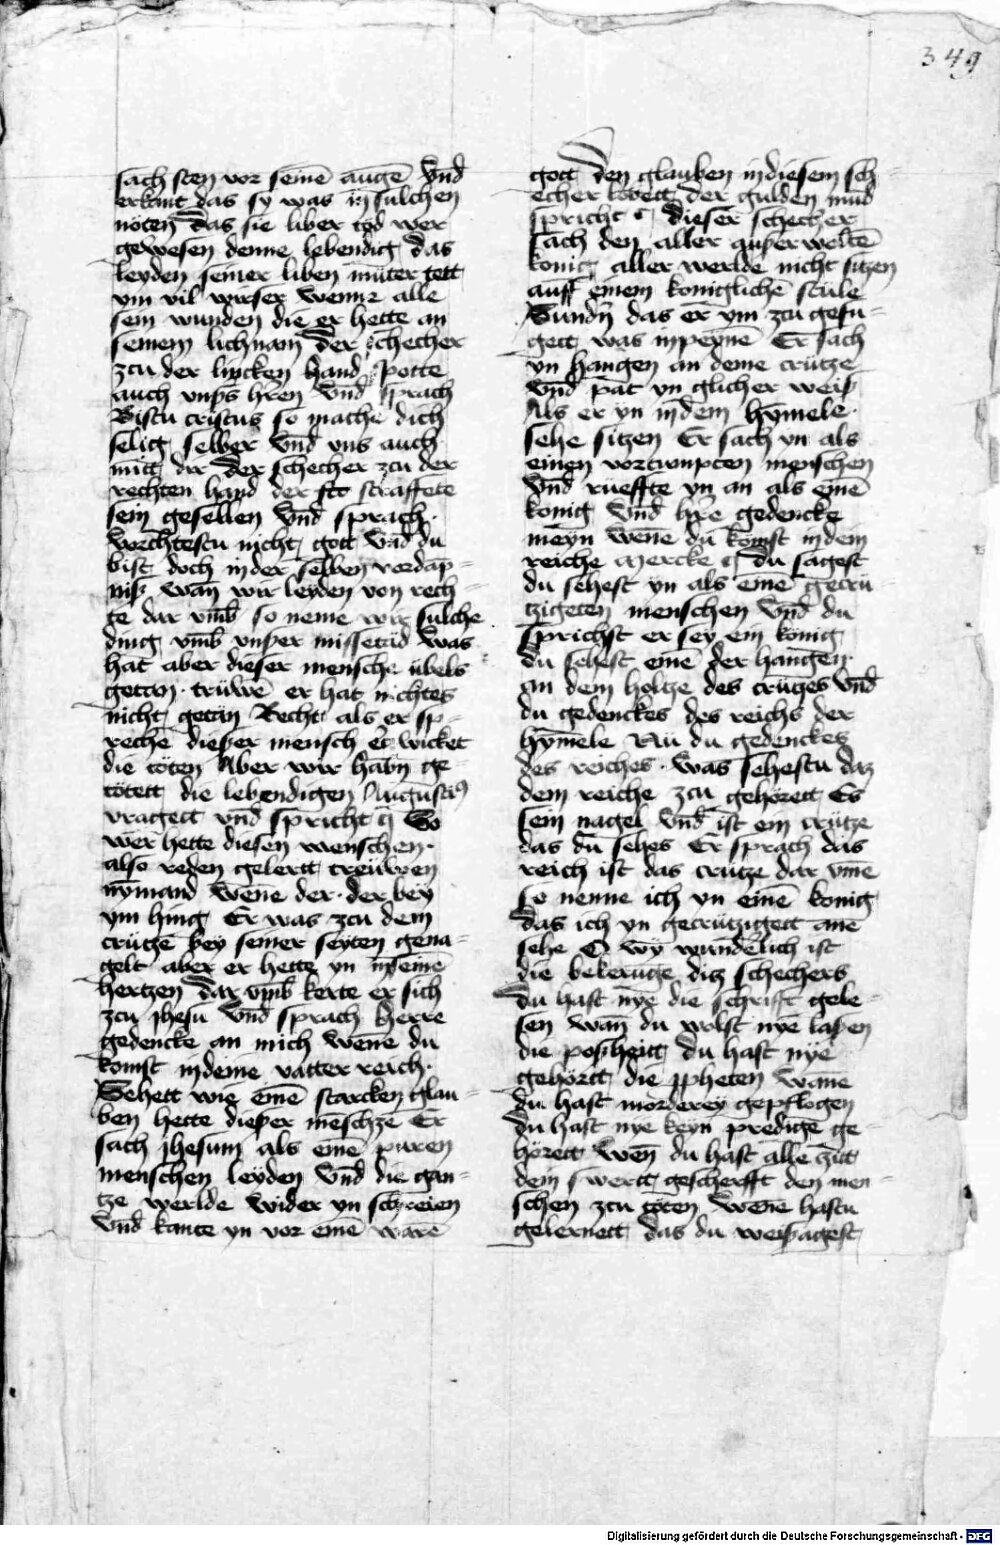 349
sach sten vor seinē augē Vnd
erkant das sy was in sulchen
nöten das sie liber tod wer
gewesen denne lebendig das
leyden seiner liben muter tett
ym vil wirser wenne alle
sein wunden die er hette an
seinem lichnam Der schecher
zcu der lincken hand spotte
auch vnsers hren Vnd sprach
Bistu cristus so mache dich
selig selber Vnd vns auch
mitt dir Der schecher zcu der
rechten hand der straffete
sein gesellen Vnd sprach
Vorchtestu nicht gott Vnd du
bist doch in der selben vordap=
niß wan wir leyden von rech=
te dar vmb so neme wir sulche
ding vmb vnßer missetad was
hat aber dieser mensche übels
getan · trüwē er hat nichtes
nicht getan Recht als er sp=
reche dießer mensch erwicket
die töten Aber wir habn ge=
tötett die lebendigen Augustin9
vragett vnd spricht So
wer hette diesen menschen
also reden gelertt treüwen
nymand wene der der bey
ym hing Er was zcu dem
crützē bey seiner seyten gena=
gelt aber er hette yn in seinē
hertzen Dar vmb kerte er sich
zcu jhesu Vnd sprach Herre
gedencke an mich wene du
komst in deine vatter reich
Sehett wie einē starcken glau=
ben hette dießer mēsche Er
sach jhesum als einē puren
menschen leyden Vnd die gan=
tze werlde wider yn schreien
Vnd kante yn vor einē warē
gott Den glauben in diesem sch=
echer lobett der gulden mūd
spricht dieser schecher
sach den aller außerweltē
konig aller werlde nicht sitzen
auff einem koniglichē stule
Sundn das er ym zcu gefu=
gett was in peynē Er sach
yn hangen an deme crütze
Vnd pat yn glicher weiß
Als er yn in dem hymele
sehe sitzen Er sach yn als
einen vortumpten menschen
Vnd rüeffte yn an als einē
konig Vnd hre gedencke
meyn wene du komst in dein
reiche Mercke du sagest
du sehest yn als einē gecru=
tzigeten menschen Vnd du
sprichst er sey ein konig
du sehest einē der hangen
an dem holtze des crützes Vnd
du gedenckes des reichs der
hymele Nu du gedenckes
des reiches · was sehestu daz
dem reiche zcu gehörett Es
sein nagel Vnd ist ein crütze
das du sehes Er sprach das
reich ist das crütze dar vmē
so nenne ich yn einē konig
das ich yn gecrützigett ane
sehe O wy wunderlich ist
die bekerūge ditz schechers
Du hast nye die schrifft gele=
sen wan du wolst nye laßen
die poßheitt du hast nye
gehörtt die ppheten wane
du hast morderey gepflogen
Du hast nye keyn predige ge=
hörett wen du hast alle zitt
dein swertt gescherfft den men=
schen zcu töten Wene hastu
gelernett das du weißagest
Digitalisierung gefördert durch die Deutsche Forschungsgemeinschaft - DFG